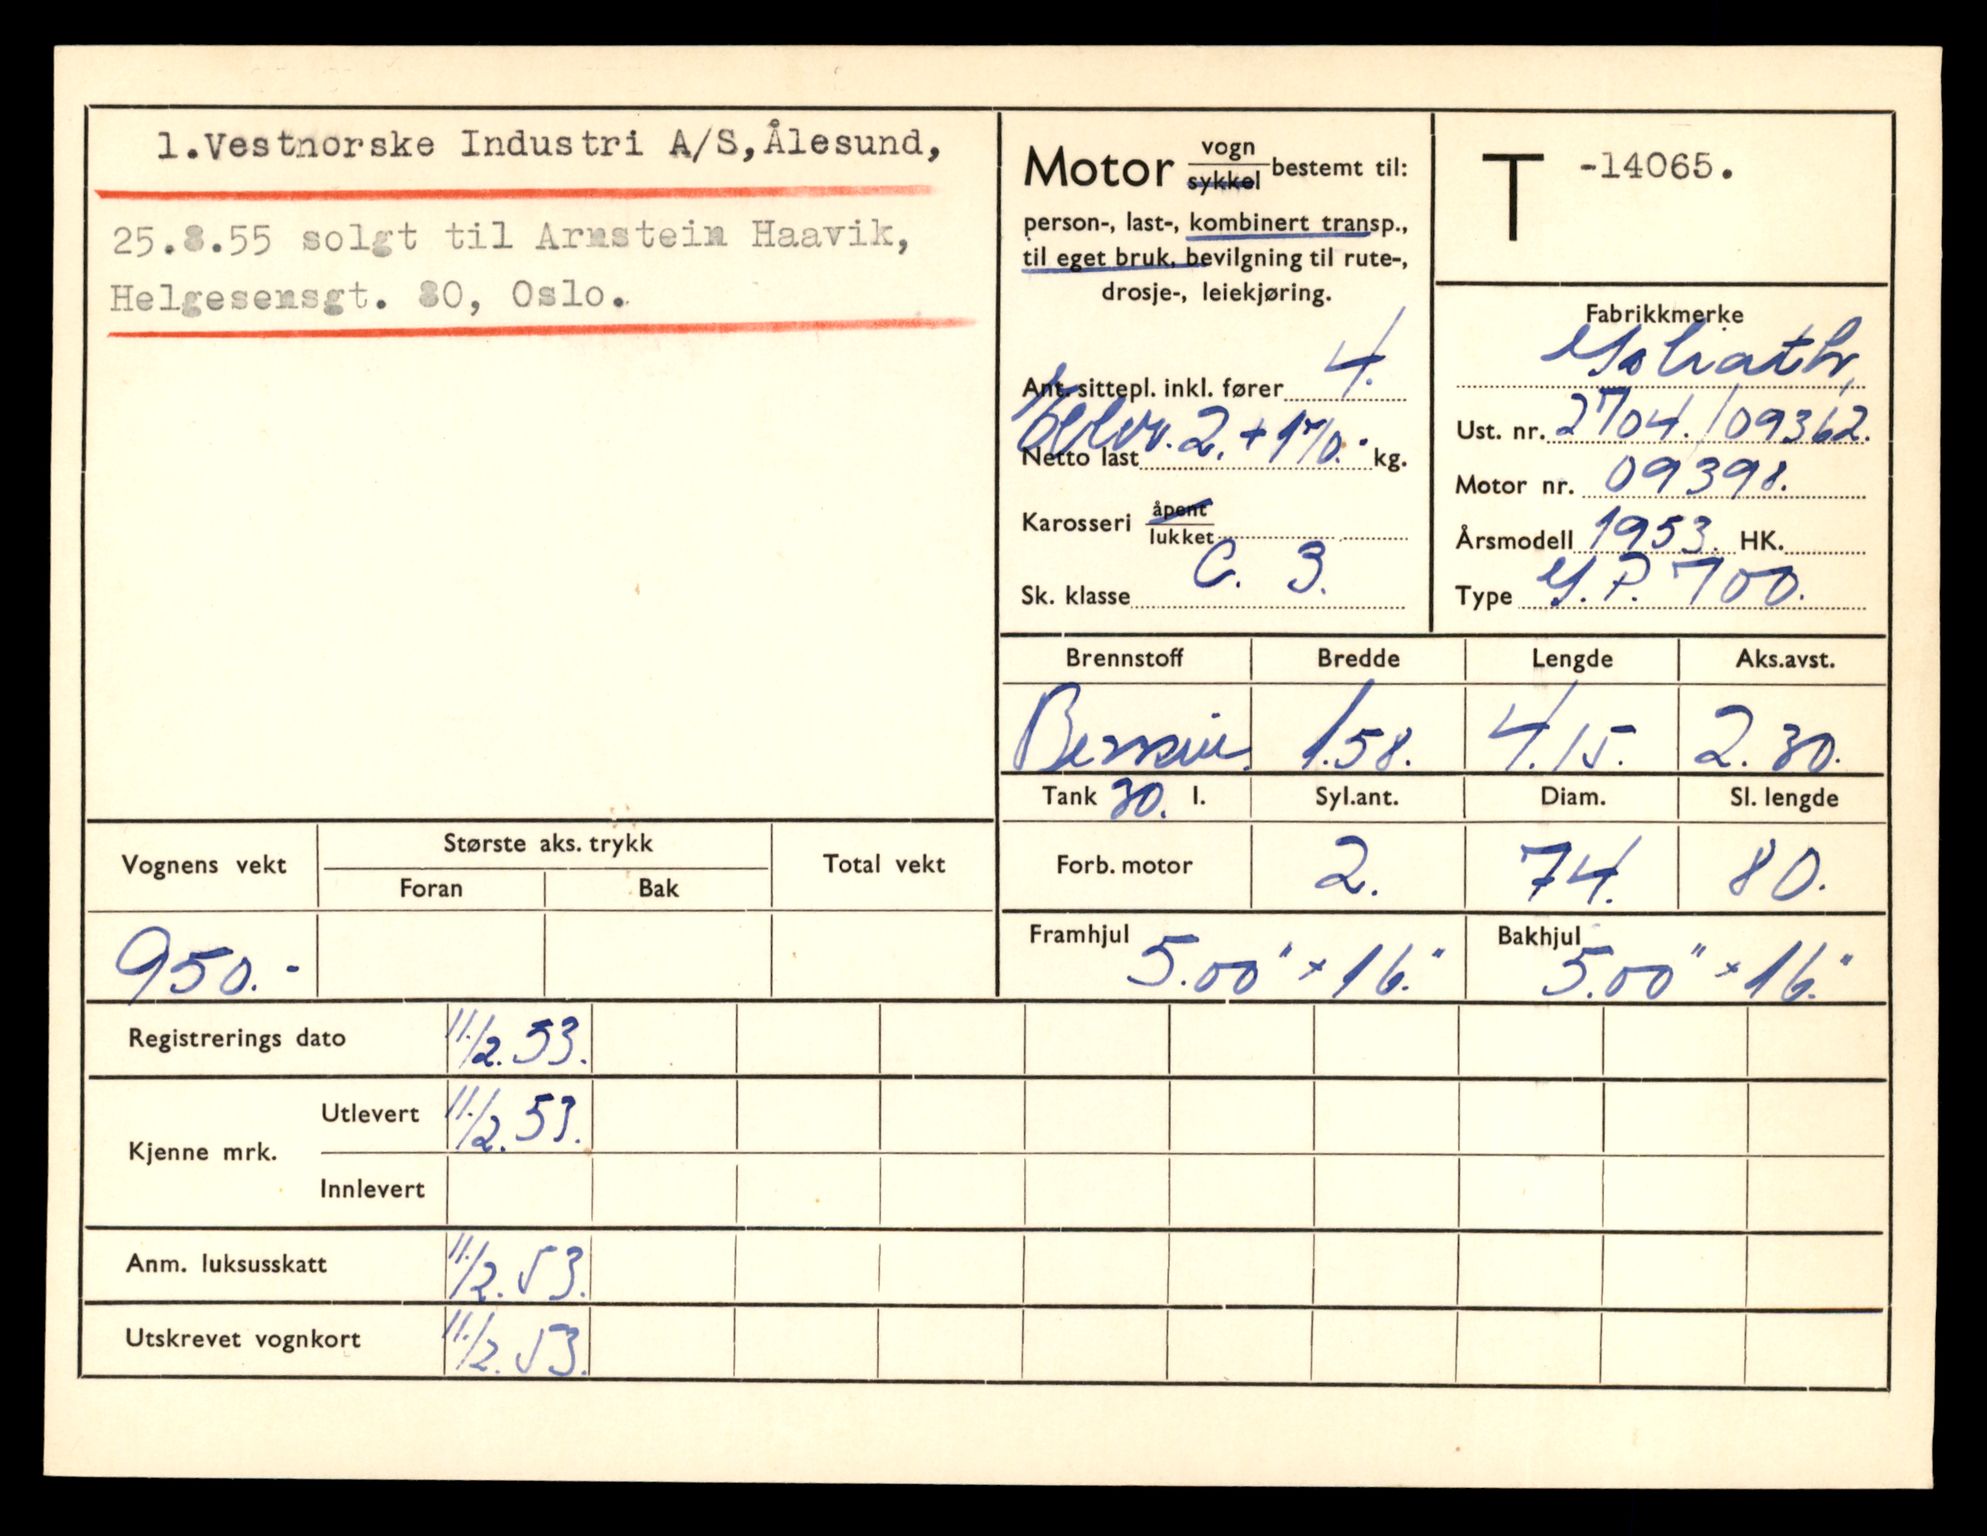 1.Vestnorske Industri A/S,Ålesund,
25.8.55 solgt til Arnstein Haavik,
Helgesensgt. 80, Oslo.
Motor vogn
sykkel bestemt til:
person-, last-, kombinert transp.,
til eget bruk, bevilgning til rute-,
drosje-, leiekjøring.
Ant. sittepl. inkl. fører 4.
2. + 170.
Netto last kg.
Karosseri åpent
lukket
Sk. klasse C. 3.
T -14065.
Fabrikkmerke
Goliath
Ust. nr. 2704./09362.
Motor nr. 09398.
Årsmodell 1953. HK.
Type G.P. 700.
Brennstoff Bredde Lengde Aks.avst.
Bensin. 1.58. 4.15. 2.30.
Tank 30. l. Syl.ant. Diam. Sl. lengde
Forb. motor 2. 74. 80.
Framhjul 5.00" x 16." Bakhjul 5.00" x 16."
Vognens vekt Største aks. trykk Total vekt
Foran Bak
950.-
Registrerings dato 11/2.53.
Kjenne mrk. Utlevert 11/2.53.
Innlevert
Anm. luksusskatt 11/2.53.
Utskrevet vognkort 11/2.53.